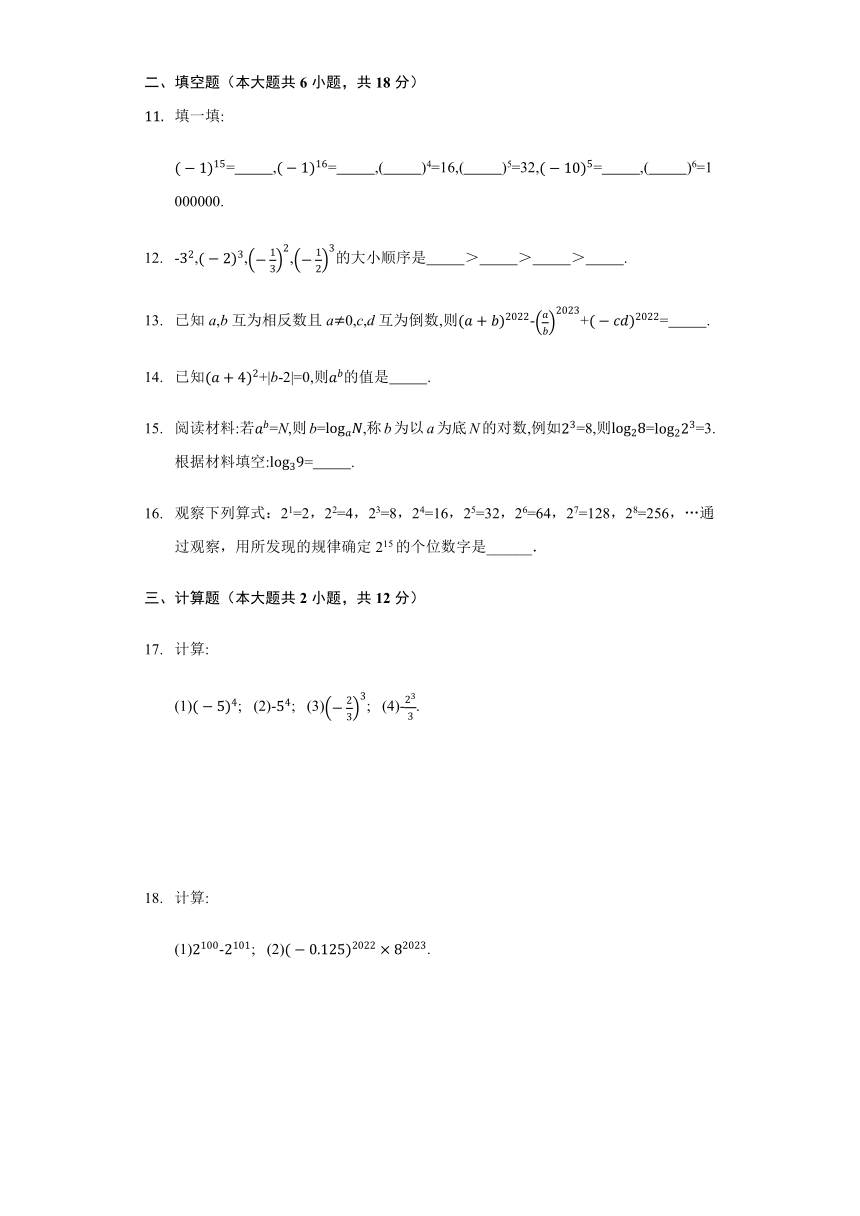 二、填空题（本大题共 6 小题，共 18 分）
11. 填一填:
(−1)¹⁵=_____,(−1)¹⁶=_____,(_____)⁴=16,(_____)⁵=32,(−10)⁵=_____,(_____)⁶=1
000000.
12. -3²,(−2)³,(−1/3)²,(−1/2)³的大小顺序是_____＞_____＞_____＞_____.
13. 已知 a,b 互为相反数且 a≠0,c,d 互为倒数,则(a+b)²⁰²²-(a/b)²⁰²³+(−cd)²⁰²²=_____.
14. 已知(a+4)²+|b-2|=0,则aᵇ的值是_____.
15. 阅读材料:若aᵇ=N,则 b=logₐN,称 b 为以 a 为底 N 的对数,例如2³=8,则log₂8=log₂2³=3.
根据材料填空:log₃9=_____.
16. 观察下列算式：2¹=2，2²=4，2³=8，2⁴=16，2⁵=32，2⁶=64，2⁷=128，2⁸=256，…通
过观察，用所发现的规律确定 2¹⁵ 的个位数字是______．
三、计算题（本大题共 2 小题，共 12 分）
17. 计算:
(1)(−5)⁴; (2)-5⁴; (3)(−2/3)³; (4)-2³/3.
18. 计算:
(1)2¹⁰⁰-2¹⁰¹; (2)(−0.125)²⁰²²×8²⁰²³.